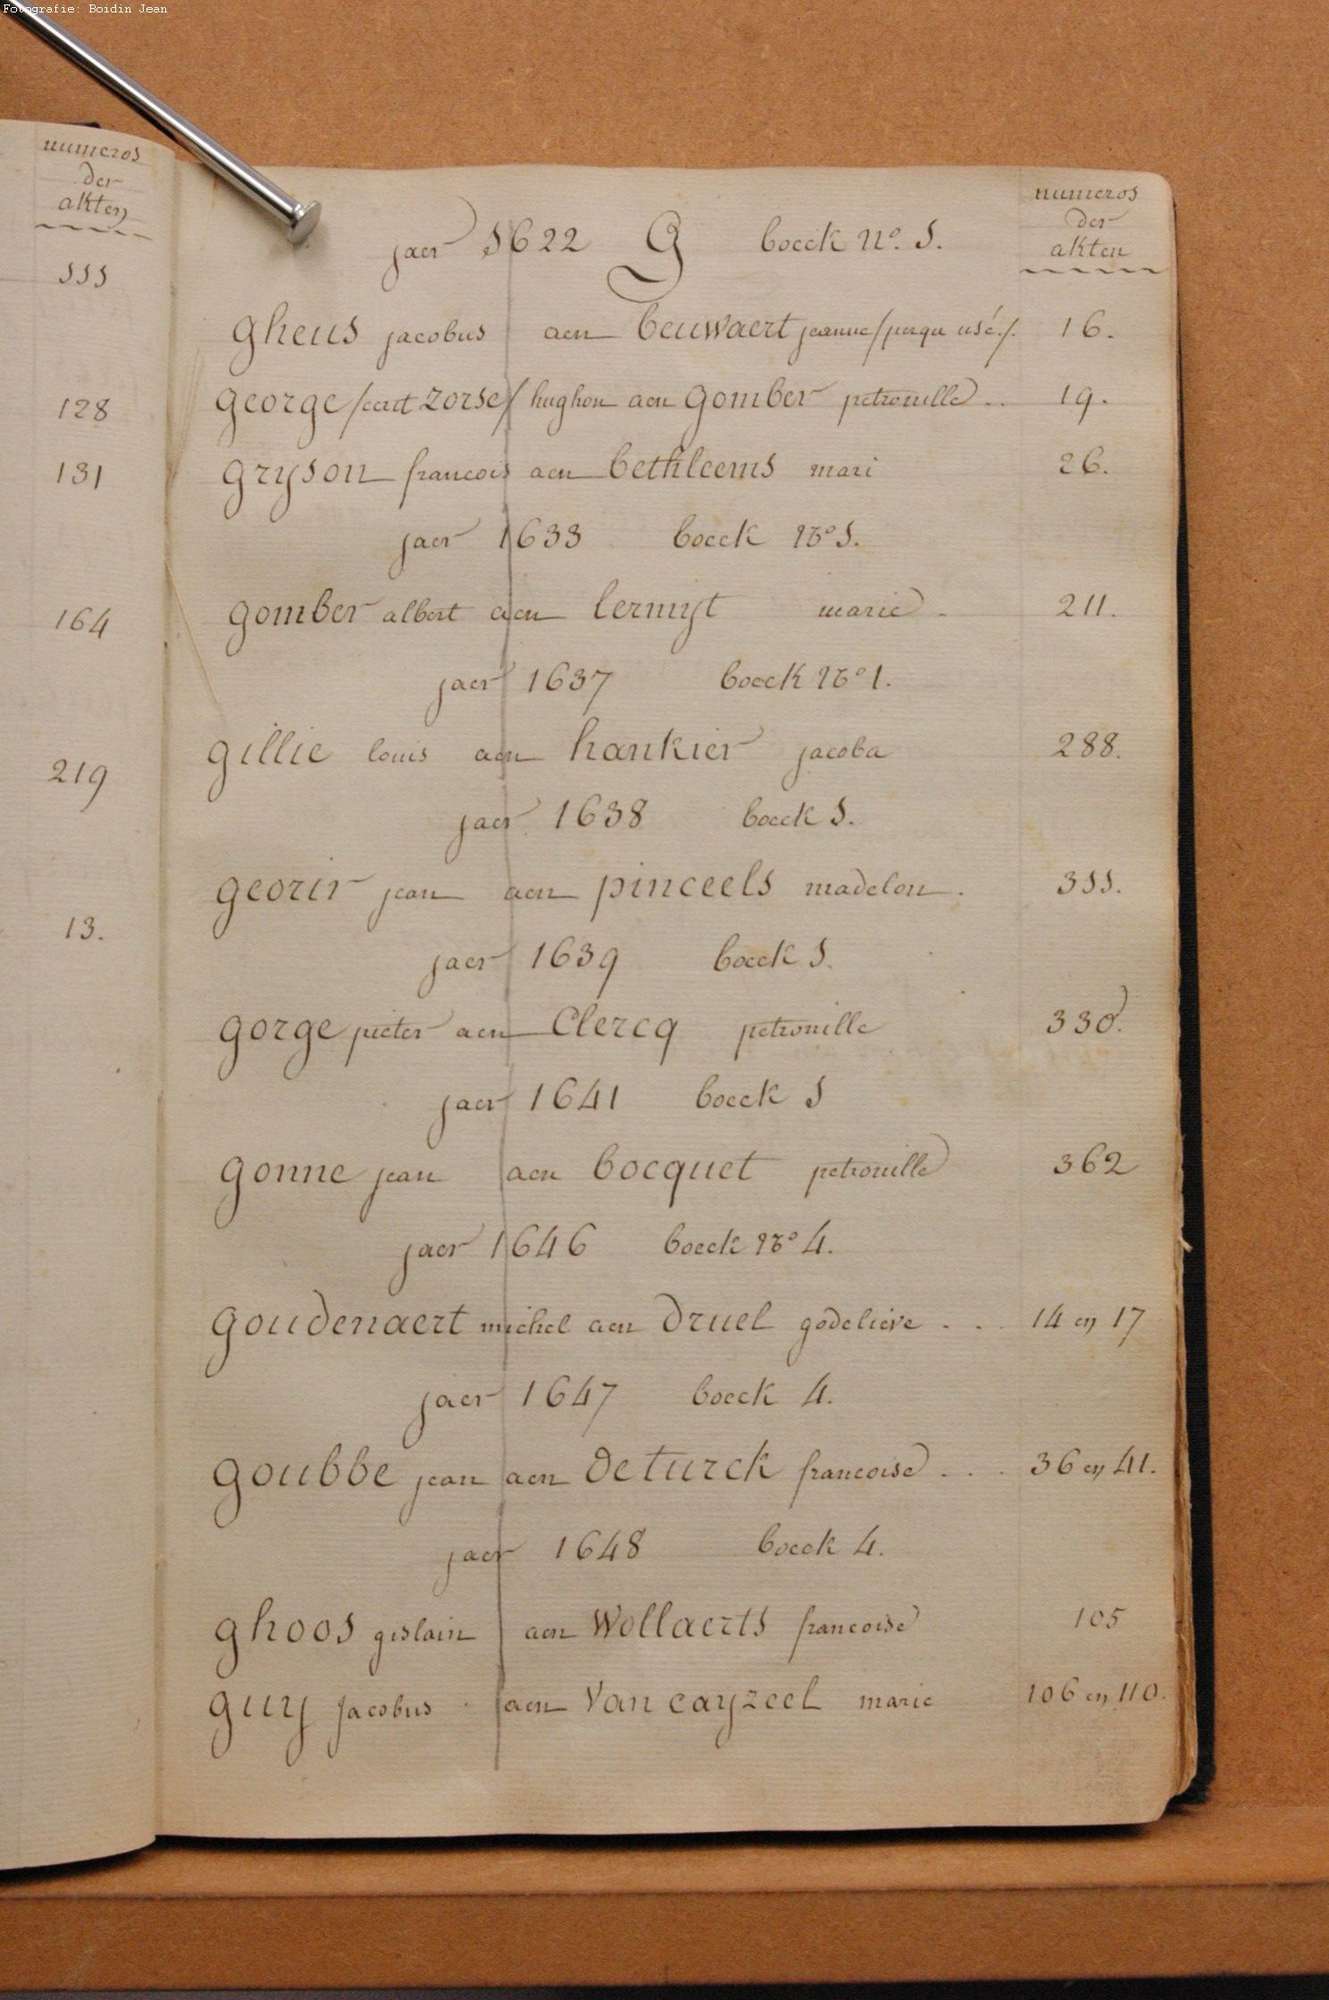 Fotografie: Boidin Jean
numeros
der
akten
111
128
131
164
219
13.
numeros
der
akten
jaer 1622 G boeck n°. 1.
gheus jacobus aen beuwaert jeanne / usé / 16.
george / ecrit zorse / hughon aen gomber petronille .. 19.
gryson francois aen bethleems mari 26.
jaer 1633 boeck N° 1.
gomber albert aen lermyt marie - 211.
jaer 1637 boeck N° 1.
gillie louis aen hankier jacoba 288.
jaer 1638 boeck 1.
georir jean aen pinceels madelon . 311.
jaer 1639 boeck 1.
gorge pieter aen Clercq petronille 330.
jaer 1641 boeck 1
gonne jean aen bocquet petronille 362
jaer 1646 boeck N° 4.
goudenaert michel aen Druel godelieve . . . 14 en 17
jaer 1647 boeck 4.
goubbe jean aen Deturck francoise . . . 36 en 41.
jaer 1648 boeck 4.
ghoos gislain aen Wollaerts francoise 105
guy jacobus aen Van cayzeel marie 106 en 110.